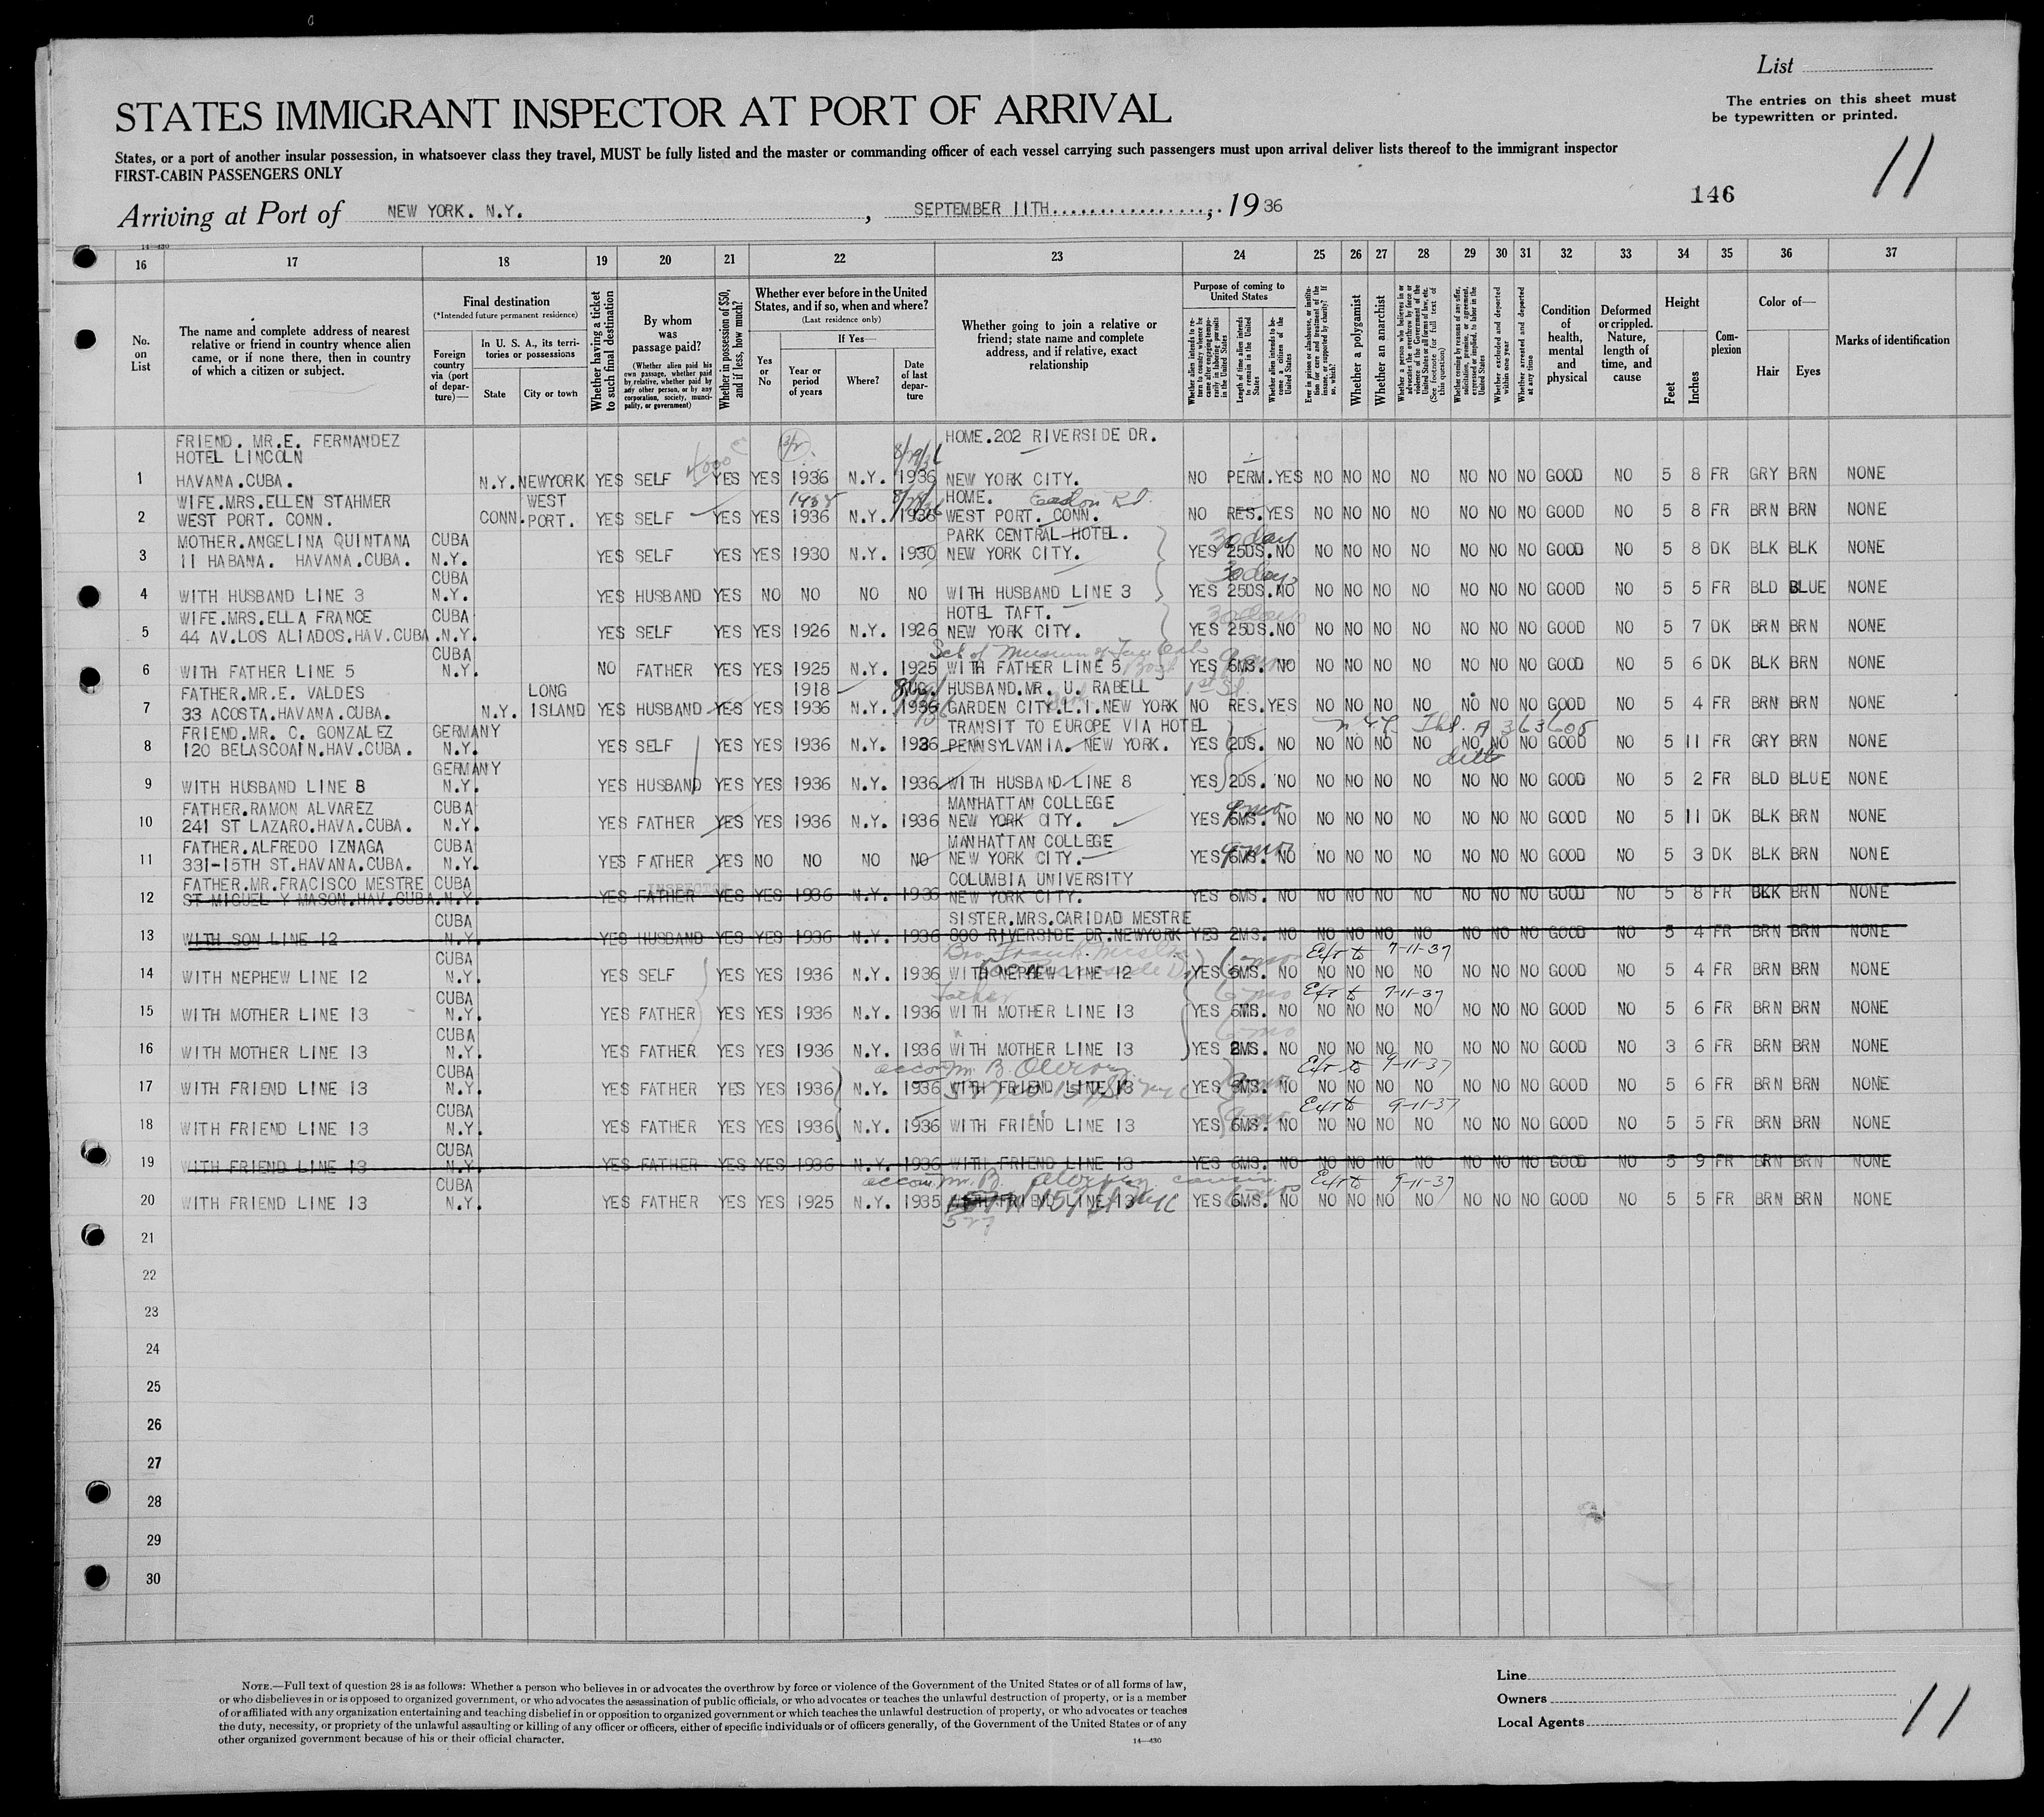 List
STATES IMMIGRANT INSPECTOR AT PORT OF ARRIVAL
The entries on this sheet must
be typewritten or printed.
11
States, or a port of another insular possession, in whatsoever class they travel, MUST be fully listed and the master or commanding officer of each vessel carrying such passengers must upon arrival deliver lists thereof to the immigrant inspector
FIRST-CABIN PASSENGERS ONLY
146
Arriving at Port of NEW YORK. N.Y. , SEPTEMBER 11TH , 1936
14—430
16 17 18 19 20 21 22 23 24 25 26 27 28 29 30 31 32 33 34 35 36 37
No. on List
The name and complete address of nearest relative or friend in country whence alien came, or if none there, then in country of which a citizen or subject.
Final destination
(*Intended future permanent residence)
Foreign country via (port of departure)—
In U. S. A., its territories or possessions
State
City or town
Whether having a ticket to such final destination
By whom was passage paid?
(Whether alien paid his own passage, whether paid by relative, whether paid by any other person, or by any corporation, society, municipality, or government)
Whether in possession of $50, and if less, how much?
Whether ever before in the United States, and if so, when and where?
(Last residence only)
Yes or No
If Yes—
Year or period of years
Where?
Date of last departure
Whether going to join a relative or friend; state name and complete address, and if relative, exact relationship
Purpose of coming to United States
Whether alien intends to return to country whence he came after engaging temporarily in laboring pursuits in the United States
Length of time alien intends to remain in the United States
Whether alien intends to become a citizen of the United States
Ever in prison or almshouse, or institution for care and treatment of the insane, or supported by charity? If so, which?
Whether a polygamist
Whether an anarchist
Whether a person who believes in or advocates the overthrow by force or violence of the Government of the United States or all forms of law, etc. (See footnote for full text of this question)
Whether coming by reason of any offer, solicitation, promise, or agreement, expressed or implied, to labor in the United States
Whether excluded and deported within one year
Whether arrested and deported at any time
Condition of health, mental and physical
Deformed or crippled. Nature, length of time, and cause
Height
Feet
Inches
Complexion
Color of—
Hair
Eyes
Marks of identification
FRIEND. MR.E. FERNANDEZ HOME.202 RIVERSIDE DR.
HOTEL LINCOLN 8/29/36
1 HAVANA.CUBA. N.Y. NEWYORK YES SELF YES YES 1936 N.Y. 1936 NEW YORK CITY. NO PERM. YES NO NO NO NO NO NO NO GOOD NO 5 8 FR GRY BRN NONE
WIFE.MRS.ELLEN STAHMER WEST HOME. Easton Rd.
2 WEST PORT. CONN. CONN. PORT. YES SELF YES YES 1936 N.Y. 1936 WEST PORT. CONN. NO RES. YES NO NO NO NO NO NO NO GOOD NO 5 8 FR BRN BRN NONE
MOTHER.ANGELINA QUINTANA CUBA PARK CENTRAL HOTEL. 30 days
3 11 HABANA. HAVANA.CUBA. N.Y. YES SELF YES YES 1930 N.Y. 1930 NEW YORK CITY. YES 25DS. NO NO NO NO NO NO NO NO GOOD NO 5 8 DK BLK BLK NONE
CUBA 30 days
4 WITH HUSBAND LINE 3 N.Y. YES HUSBAND YES NO NO NO NO WITH HUSBAND LINE 3 YES 25DS. NO NO NO NO NO NO NO NO GOOD NO 5 5 FR BLD BLUE NONE
WIFE.MRS.ELLA FRANCE CUBA HOTEL TAFT. 30 days
5 44 AV.LOS ALIADOS.HAV.CUBA. N.Y. YES SELF YES YES 1926 N.Y. 1926 NEW YORK CITY. YES 25DS. NO NO NO NO NO NO NO NO GOOD NO 5 7 DK BRN BRN NONE
CUBA Sch of Museum of Fine Arts
6 WITH FATHER LINE 5 N.Y. NO FATHER YES YES 1925 N.Y. 1925 WITH FATHER LINE 5 YES 6MS. NO NO NO NO NO NO NO NO GOOD NO 5 6 DK BLK BRN NONE
FATHER.MR.E. VALDES LONG 1918 AUG. HUSBAND.MR. U. RABELL
7 33 ACOSTA.HAVANA.CUBA. N.Y. ISLAND YES HUSBAND YES YES 1936 N.Y. 1936 GARDEN CITY.L.I.NEW YORK NO RES. YES NO NO NO NO NO NO NO GOOD NO 5 4 FR BRN BRN NONE
FRIEND.MR. C. GONZALEZ GERMANY TRANSIT TO EUROPE VIA HOTEL
8 120 BELASCOAIN.HAV.CUBA. N.Y. YES SELF YES YES 1936 N.Y. 1936 PENNSYLVANIA. NEW YORK. YES 2DS. NO NO NO NO NO NO NO NO GOOD NO 5 11 FR GRY BRN NONE
GERMANY ditto
9 WITH HUSBAND LINE 8 N.Y. YES HUSBAND YES YES 1936 N.Y. 1936 WITH HUSBAND LINE 8 YES 2DS. NO NO NO NO NO NO NO NO GOOD NO 5 2 FR BLD BLUE NONE
FATHER.RAMON ALVAREZ CUBA MANHATTAN COLLEGE 9 mo
10 241 ST LAZARO.HAVA.CUBA. N.Y. YES FATHER YES YES 1936 N.Y. 1936 NEW YORK CITY. YES 6MS. NO NO NO NO NO NO NO NO GOOD NO 5 11 DK BLK BRN NONE
FATHER.ALFREDO IZNAGA CUBA MANHATTAN COLLEGE 9 mo
11 331-15TH ST.HAVANA.CUBA. N.Y. YES FATHER YES NO NO NO NO NEW YORK CITY. YES 6MS. NO NO NO NO NO NO NO NO GOOD NO 5 3 DK BLK BRN NONE
FATHER.MR.FRACISCO MESTRE CUBA COLUMBIA UNIVERSITY
12 ST MIGUEL Y MASON.HAV.CUBA. N.Y. YES FATHER YES YES 1936 N.Y. 1936 NEW YORK CITY. YES 6MS. NO NO NO NO NO NO NO NO GOOD NO 5 8 FR BLK BRN NONE
CUBA SISTER.MRS.CARIDAD MESTRE
13 WITH SON LINE 12 N.Y. YES HUSBAND YES YES 1936 N.Y. 1936 600 RIVERSIDE DR.NEWYORK YES 2MS. NO NO NO NO NO NO NO NO GOOD NO 5 4 FR BRN BRN NONE
CUBA Ext to 7-11-37
14 WITH NEPHEW LINE 12 N.Y. YES SELF YES YES 1936 N.Y. 1936 WITH NEPHEW LINE 12 YES 6MS. NO NO NO NO NO NO NO NO GOOD NO 5 4 FR BRN BRN NONE
CUBA Father 6 mo Ext to 7-11-37
15 WITH MOTHER LINE 13 N.Y. YES FATHER YES YES 1936 N.Y. 1936 WITH MOTHER LINE 13 YES 6MS. NO NO NO NO NO NO NO NO GOOD NO 5 6 FR BRN BRN NONE
CUBA 6 mo
16 WITH MOTHER LINE 13 N.Y. YES FATHER YES YES 1936 N.Y. 1936 WITH MOTHER LINE 13 YES MS. NO NO NO NO NO NO NO NO GOOD NO 3 6 FR BRN BRN NONE
CUBA Ext to 9-11-37
17 WITH FRIEND LINE 13 N.Y. YES FATHER YES YES 1936 N.Y. 1936 WITH FRIEND LINE 13 YES MS. NO NO NO NO NO NO NO NO GOOD NO 5 6 FR BRN BRN NONE
CUBA Ext to 9-11-37
18 WITH FRIEND LINE 13 N.Y. YES FATHER YES YES 1936 N.Y. 1936 WITH FRIEND LINE 13 YES 6MS. NO NO NO NO NO NO NO NO GOOD NO 5 5 FR BRN BRN NONE
CUBA
19 WITH FRIEND LINE 13 N.Y. YES FATHER YES YES 1936 N.Y. 1936 WITH FRIEND LINE 13 YES 6MS. NO NO NO NO NO NO NO NO GOOD NO 5 9 FR BRN BRN NONE
CUBA Ext to 9-11-37
20 WITH FRIEND LINE 13 N.Y. YES FATHER YES YES 1925 N.Y. 1935 WITH FRIEND LINE 13 YES 6MS. NO NO NO NO NO NO NO NO GOOD NO 5 5 FR BRN BRN NONE
527
21
22
23
24
25
26
27
28
29
30
NOTE.—Full text of question 28 is as follows: Whether a person who believes in or advocates the overthrow by force or violence of the Government of the United States or of all forms of law,
or who disbelieves in or is opposed to organized government, or who advocates the assassination of public officials, or who advocates or teaches the unlawful destruction of property, or is a member
of or affiliated with any organization entertaining and teaching disbelief in or opposition to organized government or which teaches the unlawful destruction of property, or who advocates or teaches
the duty, necessity, or propriety of the unlawful assaulting or killing of any officer or officers, either of specific individuals or of officers generally, of the Government of the United States or of any
other organized government because of his or their official character.
14—430
Line
Owners
Local Agents
11